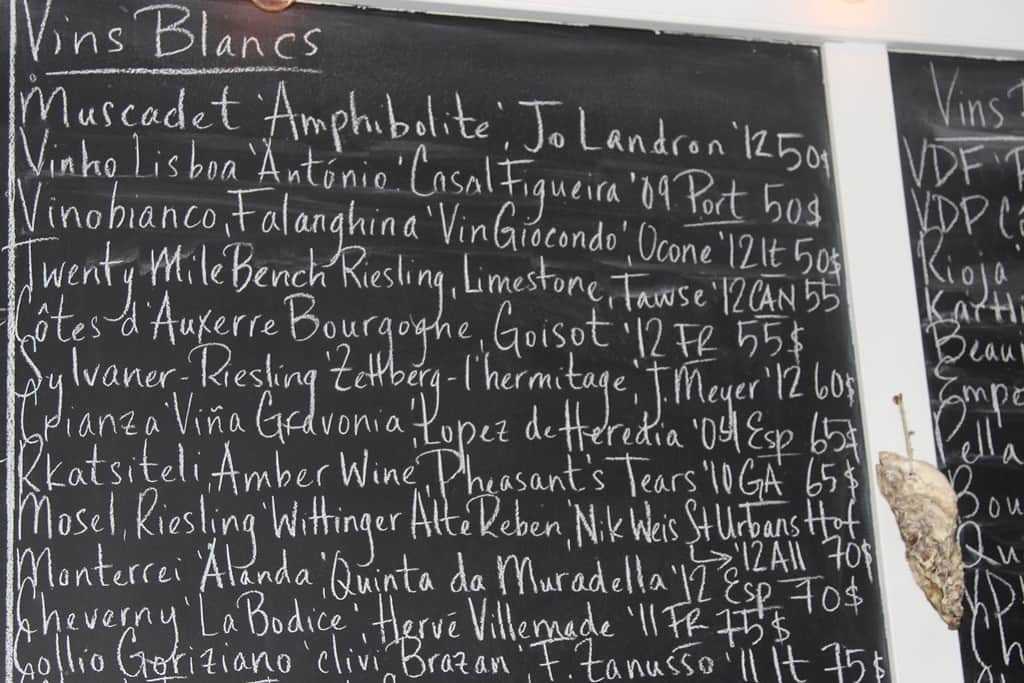 Vins Blancs
Muscadet 'Amphibolite', Jo Landron '12 50$
Vinho Lisboa 'António' Casal Figueira '09 Port 50$
Vinobianco, Falanghina 'Vin Giocondo', Ocone '12 It 50$
Twenty Mile Bench Riesling, Limestone, Tawse '12 CAN 55
Côtes d'Auxerre Bourgogne, Goisot '12 FR 55$
Sylvaner-Riesling 'Zellberg-l'hermitage', J. Meyer '12 60$
Crianza 'Viña Gravonia', Lopez de Heredia '04 Esp 65$
Rkatsiteli, Amber Wine, Pheasant's Tears '10 GA 65$
Mosel, Riesling 'Wittinger Alte Reben', Nik Weis St Urbans Hof
→ '12 All 70$
Monterrei 'Alanda', Quinta da Muradella '12 Esp 70$
Cheverny 'La Bodice', Hervé Villemade '11 FR 75$
Collio Goriziano 'clivi Brazan' F. Zanusso '11 It 75$
Vins
VDF
VDP
Rioja